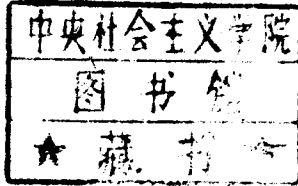 中央社会主义学院
图书馆
★藏书